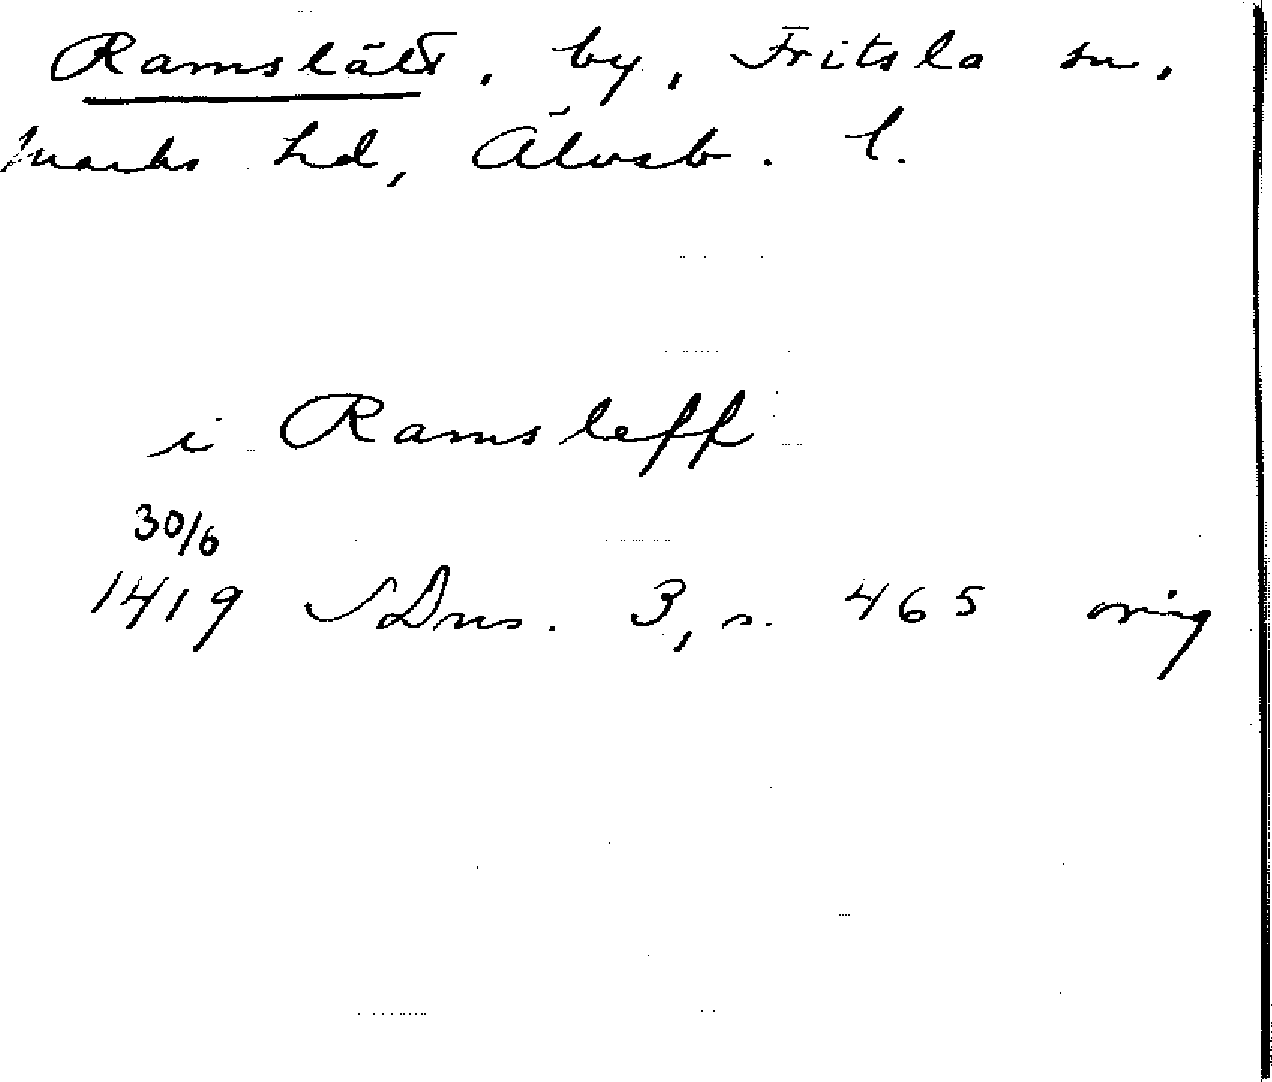 Ramslätt, by, Fritsla sn,
Marks hd, Älvsb. l.
i Ramsleff
30/6
1419 SDns. 3, s. 465 orig